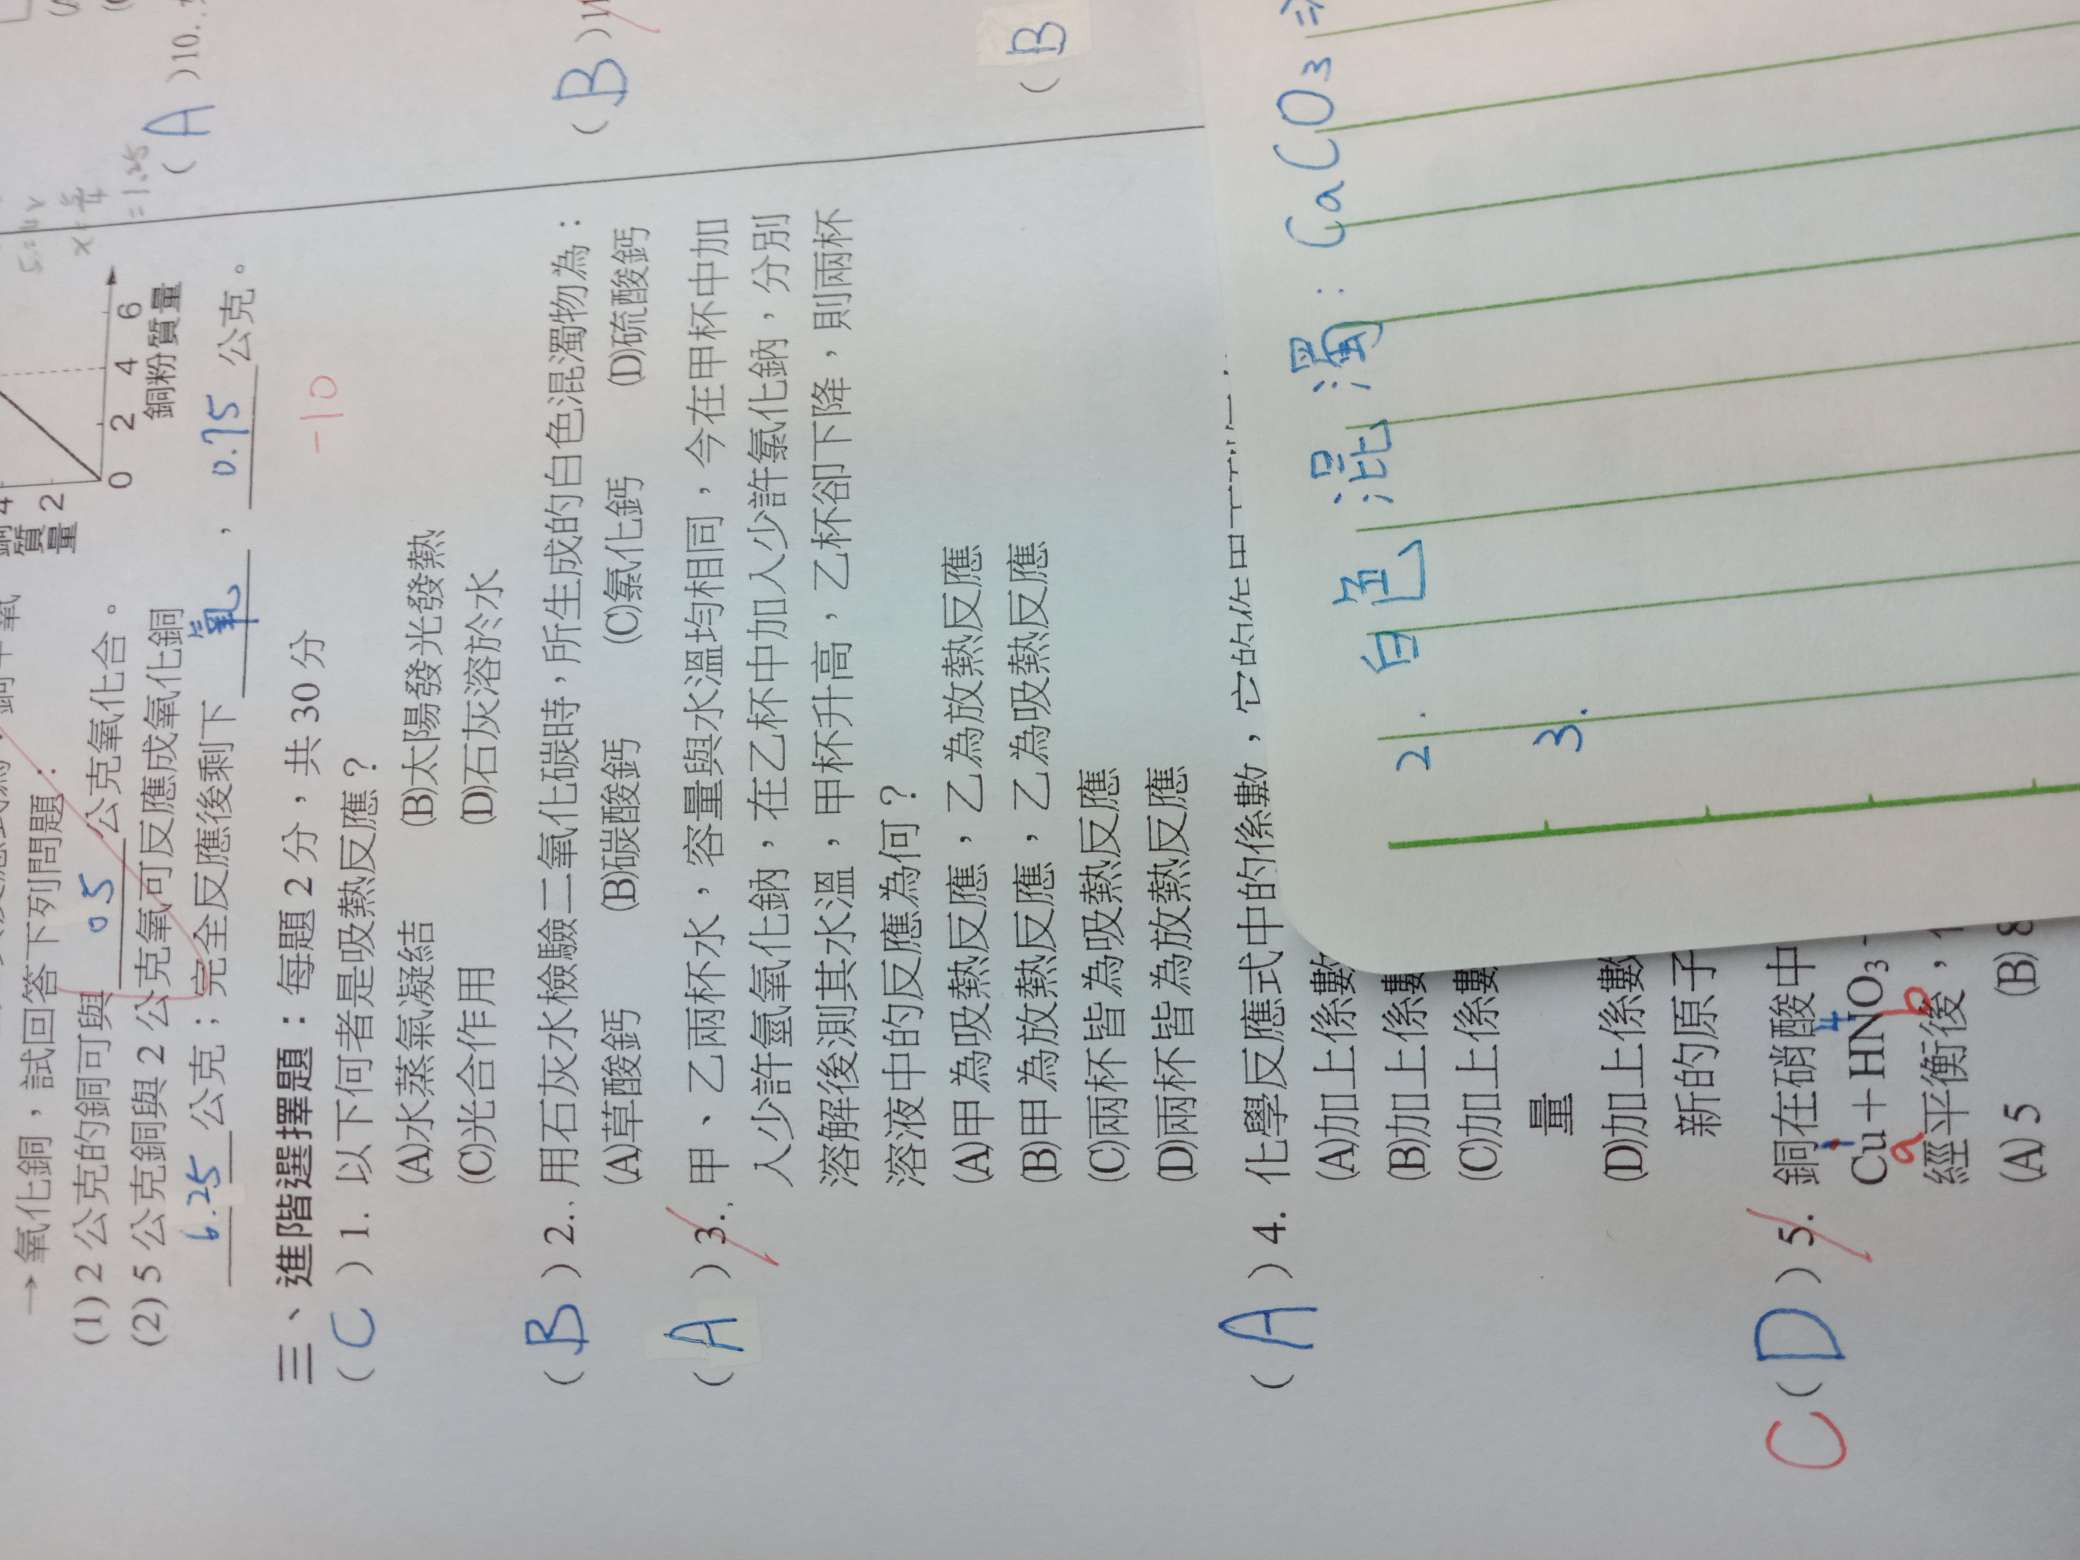 →氧化銅,
(1) 2 公克的銅可與 0.5 公克氧化合。
(2) 5 公克銅與 2 公克氧可反應成氧化銅
6.25 公克;完全反應後剩下 氧 , 0.75 公克。
試回答下列問題:
4
2
質量
0 2 4 6
銅粉質量
-10
三、進階選擇題:每題 2 分,共 30 分
( C ) 1. 以下何者是吸熱反應?
(A)水蒸氣凝結 (B)太陽發光發熱
(C)光合作用 (D)石灰溶於水
( B ) 2. 用石灰水檢驗二氧化碳時,所生成的白色混濁物為:
(A)草酸鈣 (B)碳酸鈣 (C)氯化鈣 (D)硫酸鈣
( A ) 3. 甲、乙兩杯水,容量與水溫均相同,今在甲杯中加
入少許氫氧化鈉,在乙杯中加入少許氯化鈉,分別
溶解後測其水溫,甲杯升高,乙杯卻下降,則兩杯
溶液中的反應為何?
(A)甲為吸熱反應,乙為放熱反應
(B)甲為放熱反應,乙為吸熱反應
(C)兩杯皆為吸熱反應
(D)兩杯皆為放熱反應
( A ) 4. 化學反應式中的係數,它的
(A)加上係數
(B)加上係數
(C)加上係數
量
(D)加上係數
新的原子
C ( D ) 5. 銅在硝酸中
1 4
Cu + HNO₃
a b
經平衡後,
(A) 5 (B) 8
( A ) 10.
( B )
( B
x = 5/4
= 1.25
2. 白色混濁: CaCO₃
3.